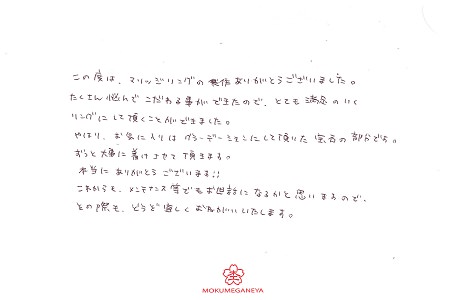 この度は、マリッジリングの製作ありがとうございました。
たくさん悩んでこだわる事ができたので、とても満足のいく
リングにして頂くことができました。
やはり、お気に入りはグラデーションにして頂いた宝石の部分です。
ずっと大事に着けさせて頂きます。
本当にありがとうございます!!
これからも、メンテナンス等でもお世話になるかと思いますので、
その際も、どうぞ宜しくお願いいたします。
MOKUMEGANEYA